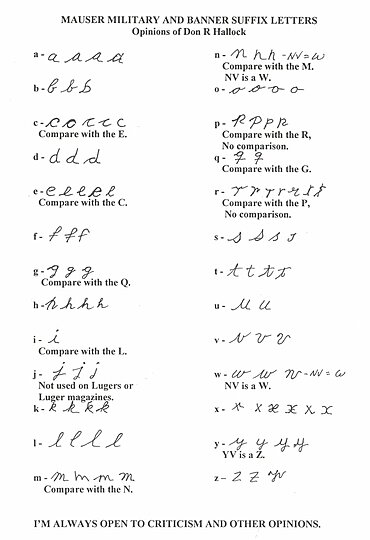 MAUSER MILITARY AND BANNER SUFFIX LETTERS
Opinions of Don R Hallock
a - a a a a
b - b b b
c - c c c c c
Compare with the E.
d - d d d
e - e e e e e
Compare with the C.
f - f f f
g - g g g
Compare with the Q.
h - h h h h
i - i
Compare with the L.
j - j j j
Not used on Lugers or
Luger magazines.
k - k k k k
l - l l l l
m - m m m m
Compare with the N.
n - n n n -NV=W
Compare with the M.
NV is a W.
o - o o o o
p - p p p p
Compare with the R,
No comparison.
q - q q
Compare with the G.
r - r r r r r r r
Compare with the P,
No comparison.
s - s s s s
t - t t t t
u - u u
v - v v v
w - w w w -NV=W
NV is a W.
x - x x x x x x
y - y y y y
YV is a Z.
z - z z yv
I'M ALWAYS OPEN TO CRITICISM AND OTHER OPINIONS.